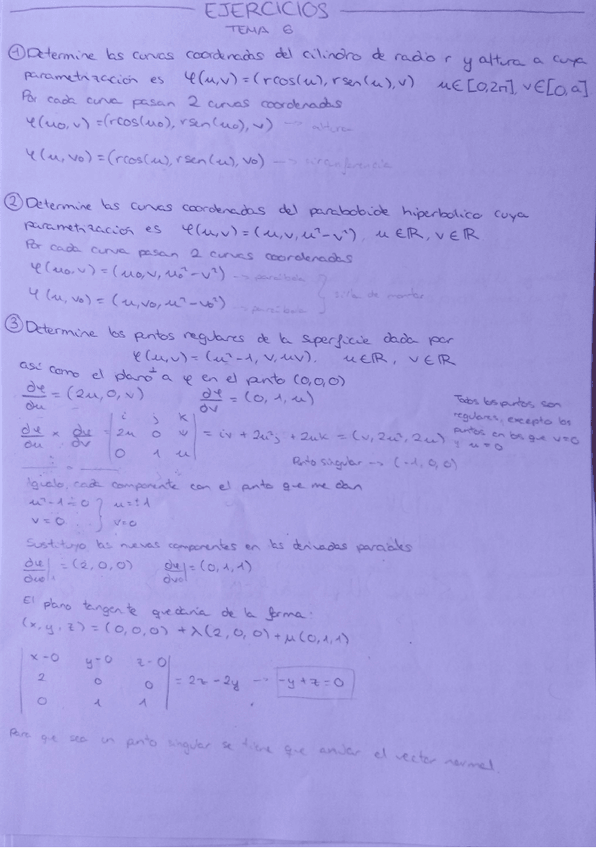 EJERCICIOS
TEMA 6
① Determine las curvas coordenadas del cilindro de radio r y altura a cuya
parametrización es φ(u,v)=(rcos(u), rsen(u), v) u∈[0,2π], v∈[0,a]
Por cada curva pasan 2 curvas coordenadas
φ(u₀,v)=(rcos(u₀), rsen(u₀), v) --→ altura
φ(u,v₀)=(rcos(u), rsen(u), v₀) --→ circunferencia
② Determine las curvas coordenadas del paraboloide hiperbólico cuya
parametrización es φ(u,v)=(u,v,u²-v²), u∈ℝ, v∈ℝ
Por cada curva pasan 2 curvas coordenadas
φ(u₀,v)=(u₀,v,u₀²-v²) --→ parábola
φ(u,v₀)=(u,v₀,u²-v₀²) --→ parábola } silla de montar
③ Determine los puntos regulares de la superficie dada por
φ(u,v)=(u²-1, v, uv). u∈ℝ, v∈ℝ
así como el plano ⊥ a φ en el punto (0,0,0)
∂φ/∂u = (2u, 0, v) ∂φ/∂v = (0, 1, u)
∂φ/∂u × ∂φ/∂v = | i j k | 2u 0 v | 0 1 u | = iv + 2u²j + 2uk = (v, 2u², 2u)
Todos los puntos son
regulares, excepto los
puntos en los que v=0
y u=0
Punto singular --→ (-1,0,0)
Igualo, cada componente con el punto que me dan
u²-1=0 } u=±1
v=0 } v=0
Sustituyo las nuevas componentes en las derivadas parciales
∂φ/∂u₀| = (2,0,0) ∂φ/∂v₀| = (0,1,1)
El plano tangente quedaría de la forma:
(x,y,z)=(0,0,0)+λ(2,0,0)+μ(0,1,1)
| x-0 y-0 z-0 |
| 2 0 0 | = 2z-2y --→ -y+z=0
| 0 1 1 |
Para que sea un punto singular se tiene que anular el vector normal.